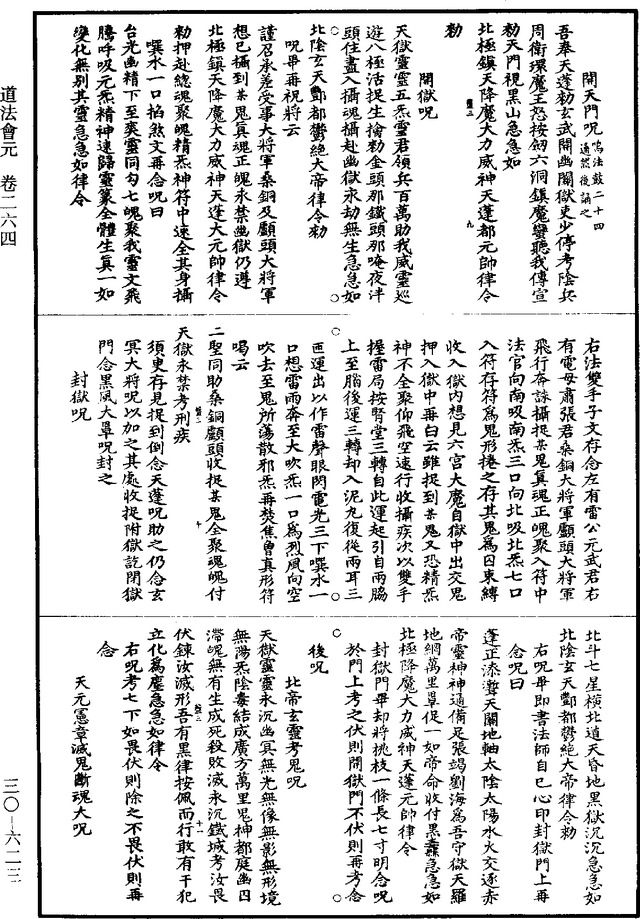 道法會元　卷二六四
開天門呪鳴法鼓二十四通然後誦之
吾奉天蓬勑玄武開幽關獄吏少停考陰兵
周衛環魔王怒按劒六洞鎮魔蠻聽我傳宣
勑天門視黑山急急如
北極鎮天降魔大力威神天蓬都元帥律令
勑
開獄呪
天獄靈靈五炁靈君領兵百萬助我威靈巡
遊八極活捉生擒勑金頭那鐵頭那唵夜泮
頭住盡入攝魂攝赴幽獄永劫無生急急如
北陰玄天酆都鬱絕大帝律令勑
呪畢再祝將云
謹召承差受事大將軍桑銅及顱頭大將軍
想已攝到某鬼真魂正魄永禁幽獄仍遵
北極鎮天降魔大力威神天蓬大元帥律令
勑押赴總魂聚魄精炁神符中速全其身攝
噀水一口掐煞文再念呪曰
台光幽精下至爽靈同勾七魄聚我靈文飛
騰呼吸元炁精神速歸靈篆全體生真一如
變化無別其靈急急如律令
右法雙手子文存念左有雷公元武君右
有電母肅張君桑銅大將軍顱頭大將軍
飛行奔詠攝捉某鬼真魂正魄聚入符中
法官向南吸南炁三口向北吸北炁七口
入符存符爲鬼形捲之存其鬼爲囚束縛
收入獄内想見六宫大魔自獄中出交鬼
押入獄中再白云雖捉到某鬼又恐精炁
神不全聚仰飛空速行收攝疾次以雙手
握雷局按腎堂三轉自此運起引自兩脇
上至腦後運三轉却入泥丸復從兩耳三
匝運出以作雷聲眼閃電光三下噀水一
口想雷雨奔至大吹炁一口爲烈風向空
吹去至鬼所蕩散邪炁再焚焦魯真形符
喝云
二聖同助桑銅顱頭收捉某鬼全聚魂魄付
天獄永禁考刑疾
須臾存見捉到倒念天蓬呪助之仍念玄
冥大將呪以加之其處收捉附獄訖閉獄
門念黑風大罩呪封之
封獄呪
北斗七星橫北道天昏地黑獄沉沉急急如
北陰玄天酆都鬱絕大帝律令勑
右呪畢即書法師自已心印封獄門上再
念呪曰
蓬正添濳天關地軸太陰太陽水火交逐赤
帝靈神神通備足張竭劉海爲吾守獄天羅
地網萬里草促一如帝命收付黑纛急急如
北極降魔大力威神天蓬元帥律令
封獄門畢却將桃枝一條長七寸明念呪
於門上考之伏則開獄門不伏則再考念
後呪
北帝玄靈考鬼呪
天獄靈靈永沉幽冥無光無像無影無形境
無陽炁陰毒結成廣方萬里鬼神都庭幽囚
滯魄無有生成死殺敗滅永沉鐵城考汝畏
伏鍊汝滅形吾有黑律按佩而行敢有干犯
立化爲塵急急如律令
右呪考七下如畏伏則除之不畏伏則再
念
天元憲章滅鬼斷魂大呪
三〇－六二三